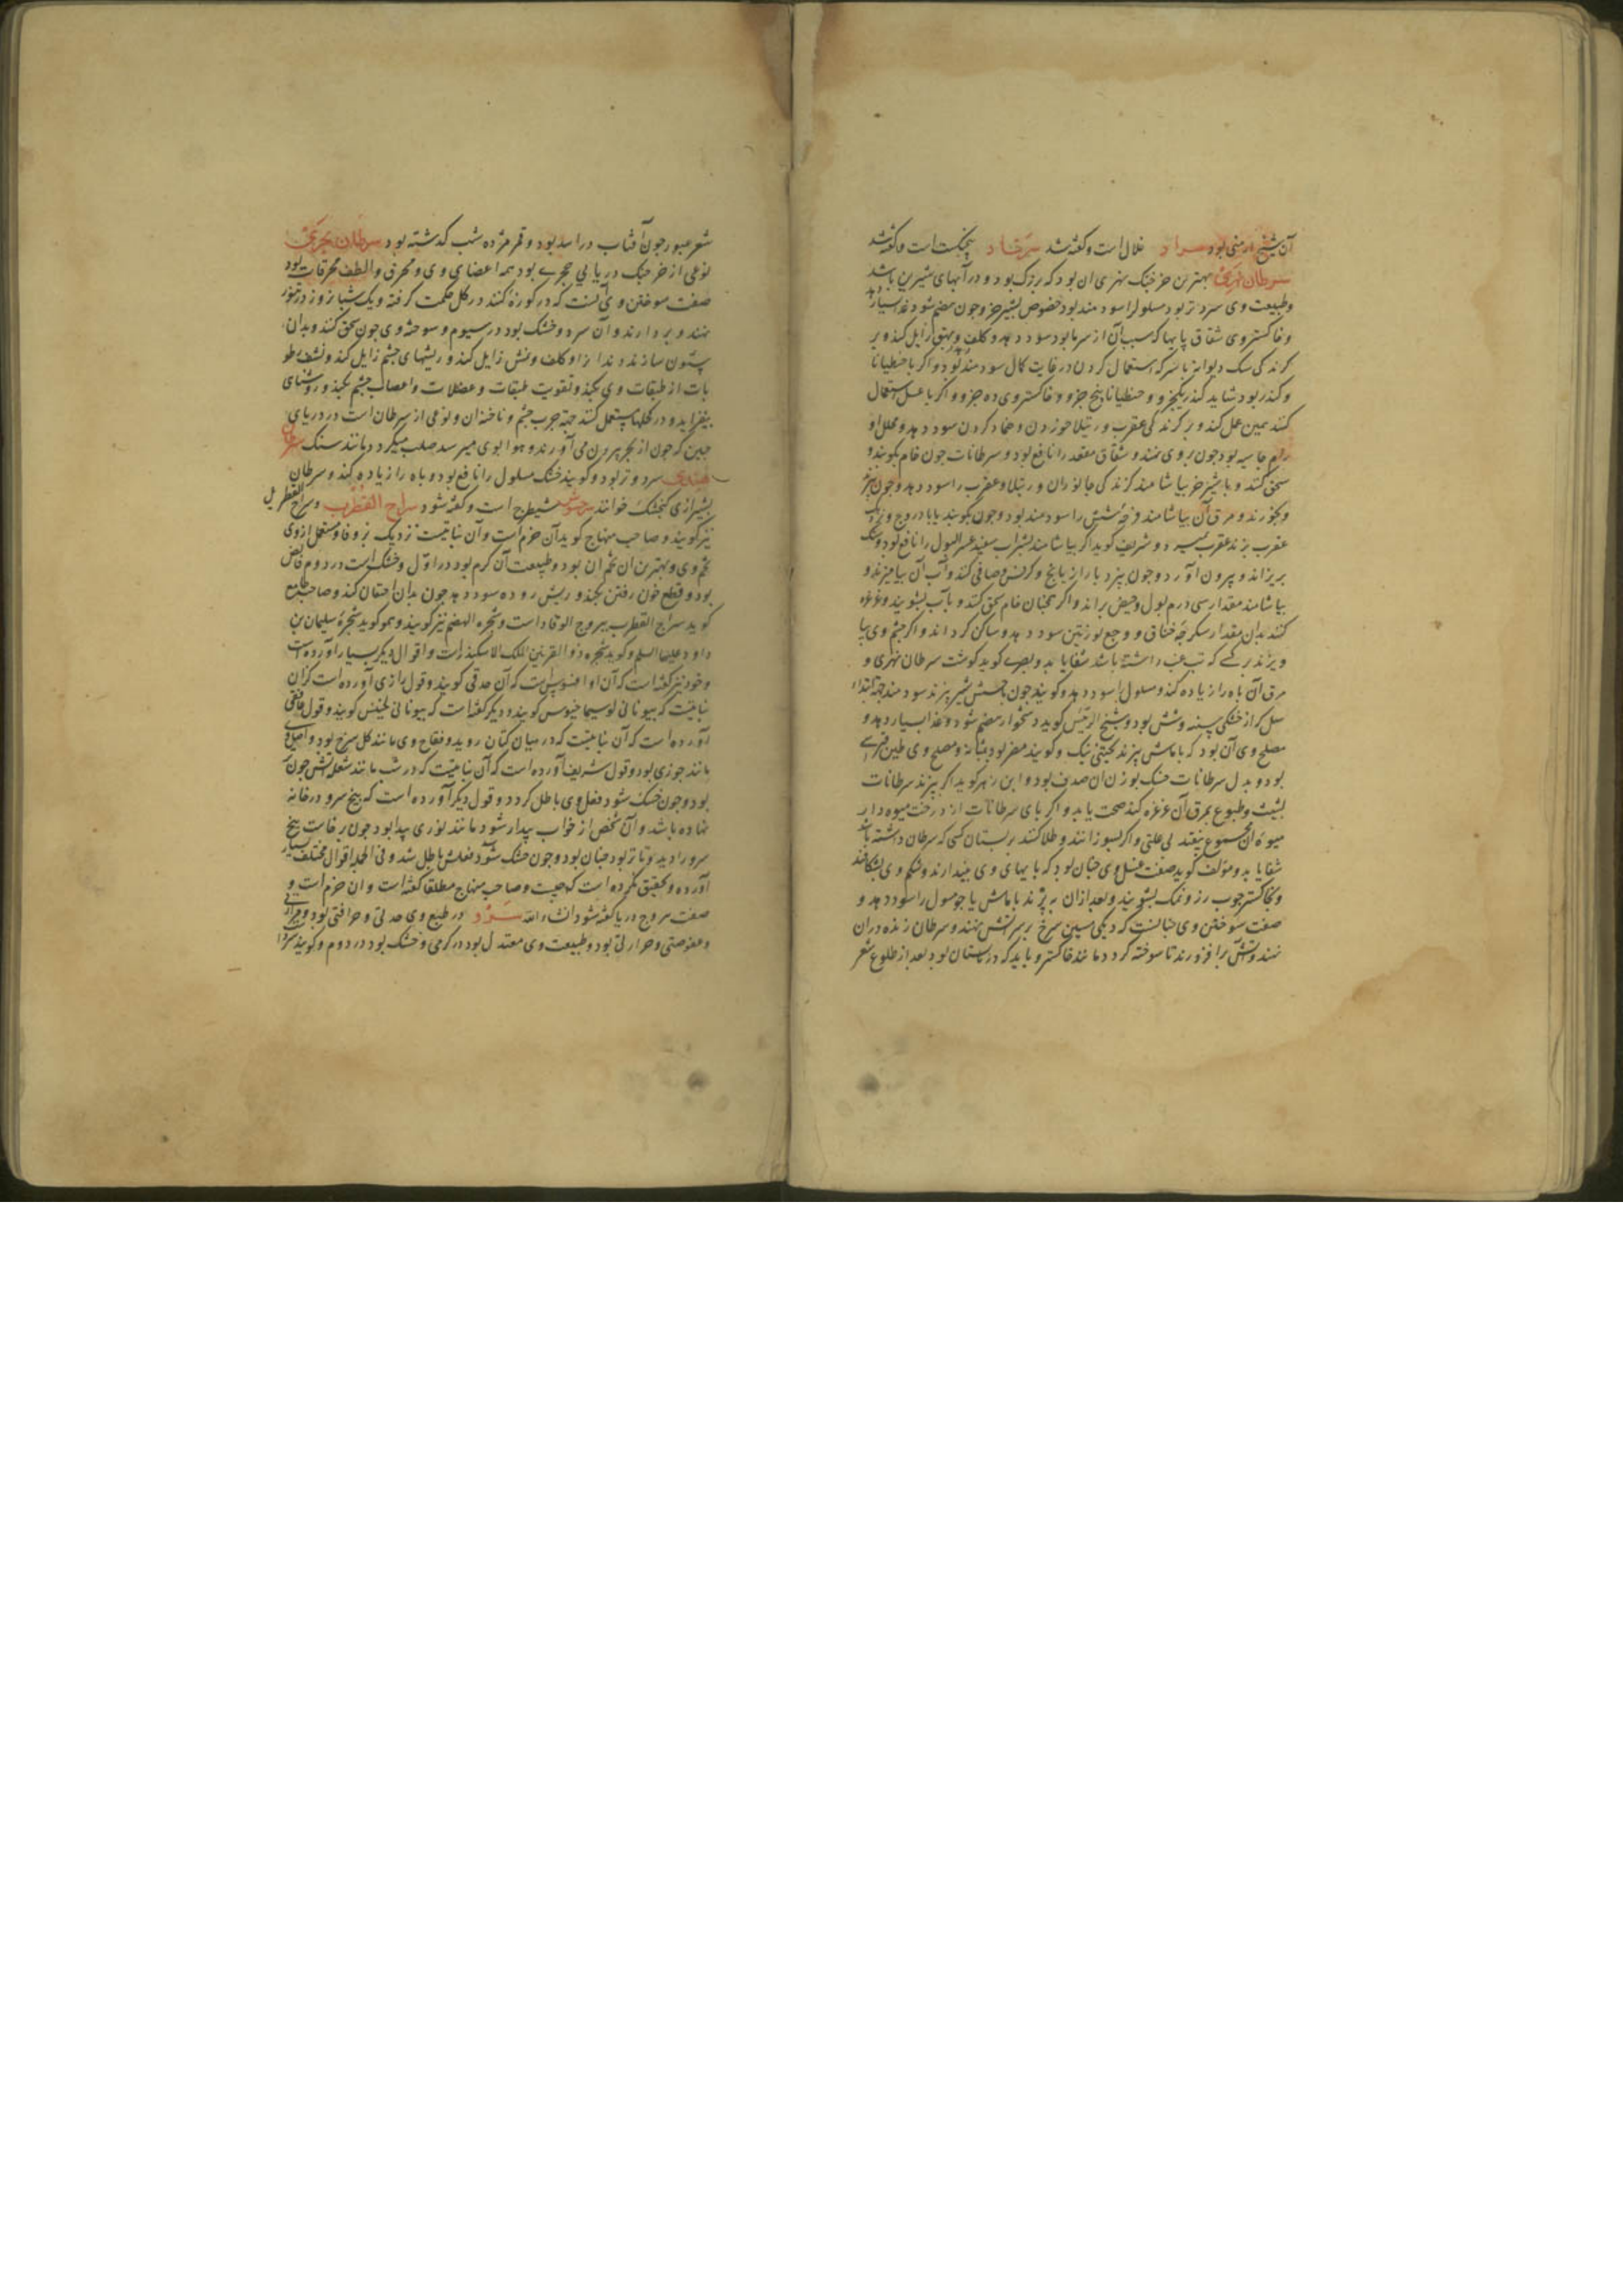 آن شیخ ارمنی بود سراد غلال است و گفته شد سرفاد پنجنکشت است و گفته شد
سرطان نهری بهترین خرچنک نهری ان بود که بزرک بود و در آبهای شیرین باشد
و طبیعت وی سرد و تر بود مسلول را سودمند بود خصوص بشیر خر و چون هضم شود غذا بسیار دهد
و خاکستر وی شقاق پایها که سبب آن از سرما بود سود دهد و کلف و بهق زایل کند و بر
کزندکی سک دیوانه با سرکه استعمال کردن در غایت کمال سودمند بود و اکر با جنطیانا
و کندر بود شاید کندر یکجزو و جنطیانا پنج جزو و خاکستر وی ده جزو و اکر با عسل استعمال
کنند همین عمل کند و بر کزندکی عقرب و رتیلا خوردن و ضماد کردن سود دهد و محلل او
رام جاسیه بود چون بروی نهند و شقاق مقعد را نافع بود و سرطانات چون خام بکوبند و
سحق کنند و با شیر خر بیاشامند کزندکی جانوران و رتیلا و عقرب را سود دهد و چون بپزند
و بخورند و مرق آن بیاشامند قرحه شش را سودمند بود و چون بکوبند با بادروج و نزدیک
عقرب برند عقرب بمیرد و شریف کوید اکر بیاشامند بشراب سفید عسر البول را نافع بود و سنک
بریزاند و بیرون آورد و چون بپزد با رازیانج و کرفس و صافی کنند و آب آن بیامیزند و
بیاشامند مقدار سی درم بول و حیض براند و اکر همچنان خام سحق کنند و بآب بشویند و غرغره
کنند بدان مقدار سکرجه خناق و وجع لوزتین سود دهد و ساکن کرداند و اکر چشم وی بیا
ویزند بر کسی که تب غب داشته باشد شفا یابد و بصری کوید کوشت سرطان نهری و
مرق آن باه را زیاده کند و مسلول را سود دهد و کویند چون با شیر بپزند سودمند جهة ابتداء
سل که از خشکی سینه و شش بود و شیخ الرئیس کوید دشخوار هضم شود و غذا بسیار دهد و
مصلح وی آن بود که با ماش بپزند پختنی نیک و کویند مضر بود بمثانه و مصلح وی طین
بود و بدل سرطانات خشک بوزن ان صدف بود و ابن زهر کوید اکر بپزند سرطانات
بشبث و طبوع بمرق آن غرغره کند صحت یابد و اکر پای سرطانات از درخت میوه دار
میوه آن مجموع بیفتد بی علتی و اکر بسوزانند و طلا کنند بر پستان کسی که سرطان داشته باشد
شفا یابد و مؤلف کوید صفت غسل وی چنان بود که پایهای وی بیندازند و شکم وی بشکافند
و بخاکستر چوب رز و نمک بشویند و بعد ازان بپزند با ماش یا جو مسلول را سود دهد و
صفت سوختن وی چنانست که دیکی مسین سرخ بر سر آتش نهند و سرطان زنده دران
نهند و آتش برافروزند تا سوخته کردد مانند خاکستر و باید که در تابستان بود بعد از طلوع شعر
شعر عبور چون آفتاب در اسد بود و قمر هژده شب کذشته بود سرطان بحری
نوعی از خرچنک دریایی حجری بود همه اعضای وی و محرق و الطف محرقات بود
صفت سوختن وی آنست که در کوزه کنند در کل حکمت کرفته و یک شبانروز در تنور
نهند و بردارند و آن سرد و خشک بود در سیوم و سوخته وی چون سحق کنند و بدان
سنون سازند دندانرا و کلف و نمش زایل کند و ریشهای چشم زایل کند و نشف رطو
بات از طبقات وی بکند و تقویت طبقات و عضلات و اعصاب چشم بکند و روشنای
بیفزاید و در کحلها مستعمل کنند جهة جرب چشم و ناخنه ان و نوعی از سرطان است در دریای
چین که چون از بحر بیرون می آورند و هوا بوی میرسد صلب میکردد مانند سنک سرطان
هندی سرد و تر بود و کویند خشک مسلول را نافع بود و باه را زیاده کند و سرطان
بشیرازی کنجشک خوانند سرخس شیطرج است و گفته شود سراج القطرب و سراج القطربل
نیز کویند و صاحب منهاج کوید آن خزم است و آن نباتیست نزدیک بزوفا و مستعمل از وی
تخم وی و بهترین ان تخم ان بود و طبیعت آن کرم بود در اول و خشک است در دوم قابض
بود و قطع خون رفتن بکند و ریش روده سود دهد چون بدان احتقان کنند و صاحب جامع
کوید سراج القطرب یبروج الوقاد است و شجره الصنم نیز کویند و همو کوید شجرهٔ سلیمان بن
داود علیهما السلم و کوید شجره ذو القرنین الملک الاسکندر است و اقوال دیکر بسیار آورده است
و خود نیز گفته است که آن اوافنسوس است که آن حدقی کویند و قول رازی آورده است که آن
نباتیست که بیونانی لوسیماخیوس کویند و دیکر گفته است که بیونانی لیخنس کویند و قول غافقی
آورده است که آن نباتیست که در میان کتان روید و فقاح وی مانند کل سرخ بود و اصل وی
مانند جوزی بود و قول شریف آورده است که آن نباتیست که در شب مانند شعله آتش چون
بود و چون خشک شود فعل وی باطل کردد و قول دیکر آورده است که بیخ سرو در خانه
نهاده باشد و آن شخص از خواب بیدار شود مانند نوری پیدا بود چون برخاست بیخ
سرو را دید و تا تر بود چنان بود و چون خشک شود فعلش باطل شد و فی الجمله اقوال مختلف بسیار
آورده و تحقیق نکرده است که چیست و صاحب منهاج مطلقا گفته است و ان خزم است و
صفت یبروج در یا گفته شود انشاء الله سرو در طبع وی حدتی و حرافتی بود و مرارتی
و عفوصتی و حرارتی بود و طبیعت وی معتدل بود در کرمی و خشک بود در دوم و کویند سرد